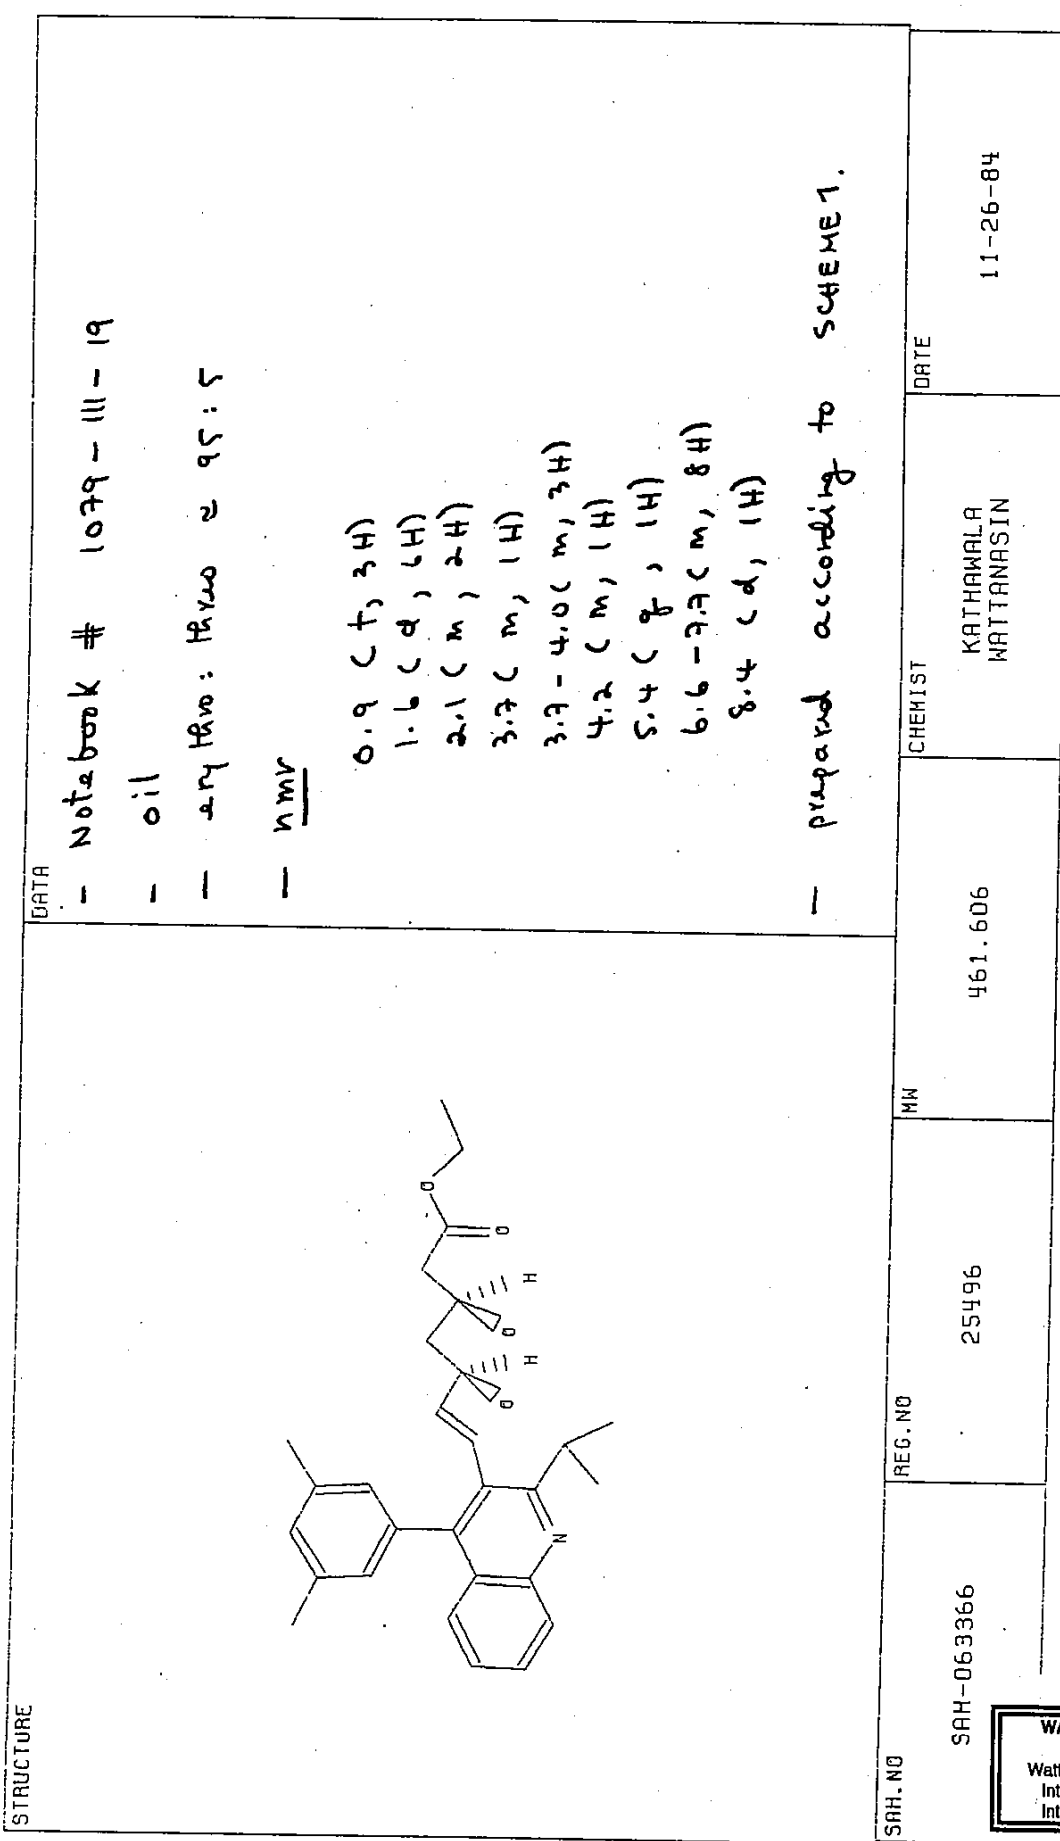 STRUCTURE
O
O
O
H
O
H
N
DATA
- Notebook # 1079-111-19
- oil
- erythro: threo ≈ 95:5
- nmr
0.9 (t, 3H)
1.6 (d, 6H)
2.1 (m, 2H)
3.7 (m, 1H)
3.7-4.0 (m, 3H)
4.2 (m, 1H)
5.4 (q, 1H)
6.6-7.7 (m, 8H)
8.4 (d, 1H)
- prepared according to SCHEME 1.
SAH.NO
SAH-063366
REG.NO
25496
MW
461.606
CHEMIST
KATHAWALA
WATTANASIN
DATE
11-26-84
WA
Watt
Int
Int